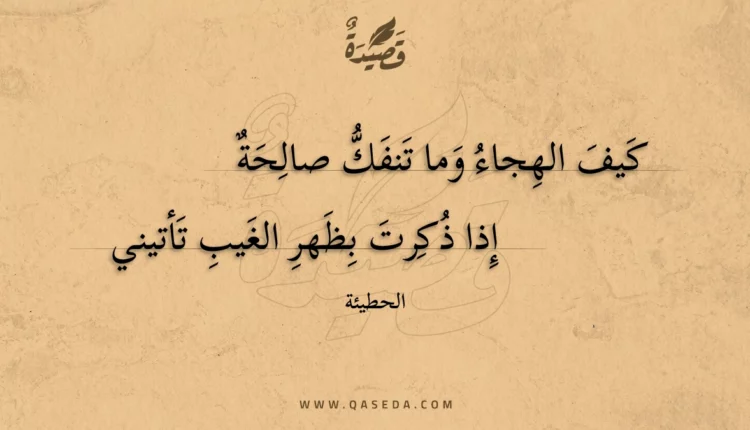 قَصِيْدَةٌ
كَيفَ الهِجاءُ وَما تَنفَكُّ صالِحَةٌ
إِذا ذُكِرتَ بِظَهرِ الغَيبِ تَأتيني
الحطيئة
WWW.QASEDA.COM